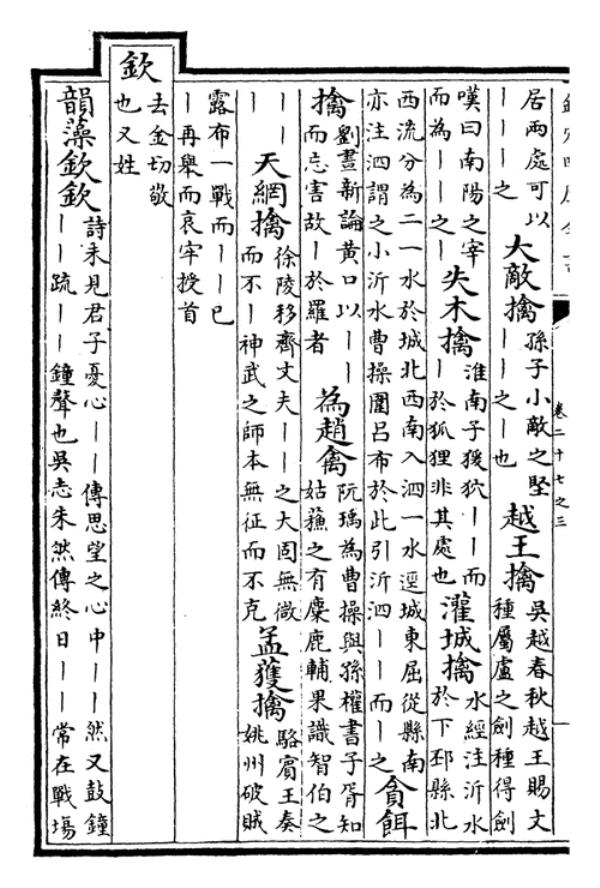 卷二十七之三
一
居兩處可以
｜｜｜之
大敵擒
孫子小敵之堅
｜｜｜之｜也
越王擒
吳越春秋越王賜文
種屬盧之劍種得劍
嘆曰南陽之宰
而為｜｜之｜
失木擒
淮南子猨狖｜｜而
｜於狐狸非其處也
灌城擒
水經注沂水
於下邳縣北
西流分為二一水於城北西南入泗一水逕城東屈從縣南
亦注泗謂之小沂水曹操圍呂布於此引沂泗｜｜而｜之
貪餌
擒
劉晝新論黄口以｜｜
而忘害故｜於羅者
為趙禽
阮瑀為曹操與孫權書子胥知
姑蘇之有麋鹿輔果識智伯之
｜｜
｜
天網擒
徐陵移齊文夫｜｜之大固無微
而不｜神武之師本無征而不克
孟獲擒
駱賓王奏
姚州破賊
露布一戰而｜｜已
｜再舉而哀牢授首
欽
去金切敬
也又姓
韻藻欽欽
詩未見君子憂心｜｜傳思望之心中｜｜然又鼓鐘
｜｜疏｜｜鐘聲也吳志朱然傳終日｜｜常在戰塲